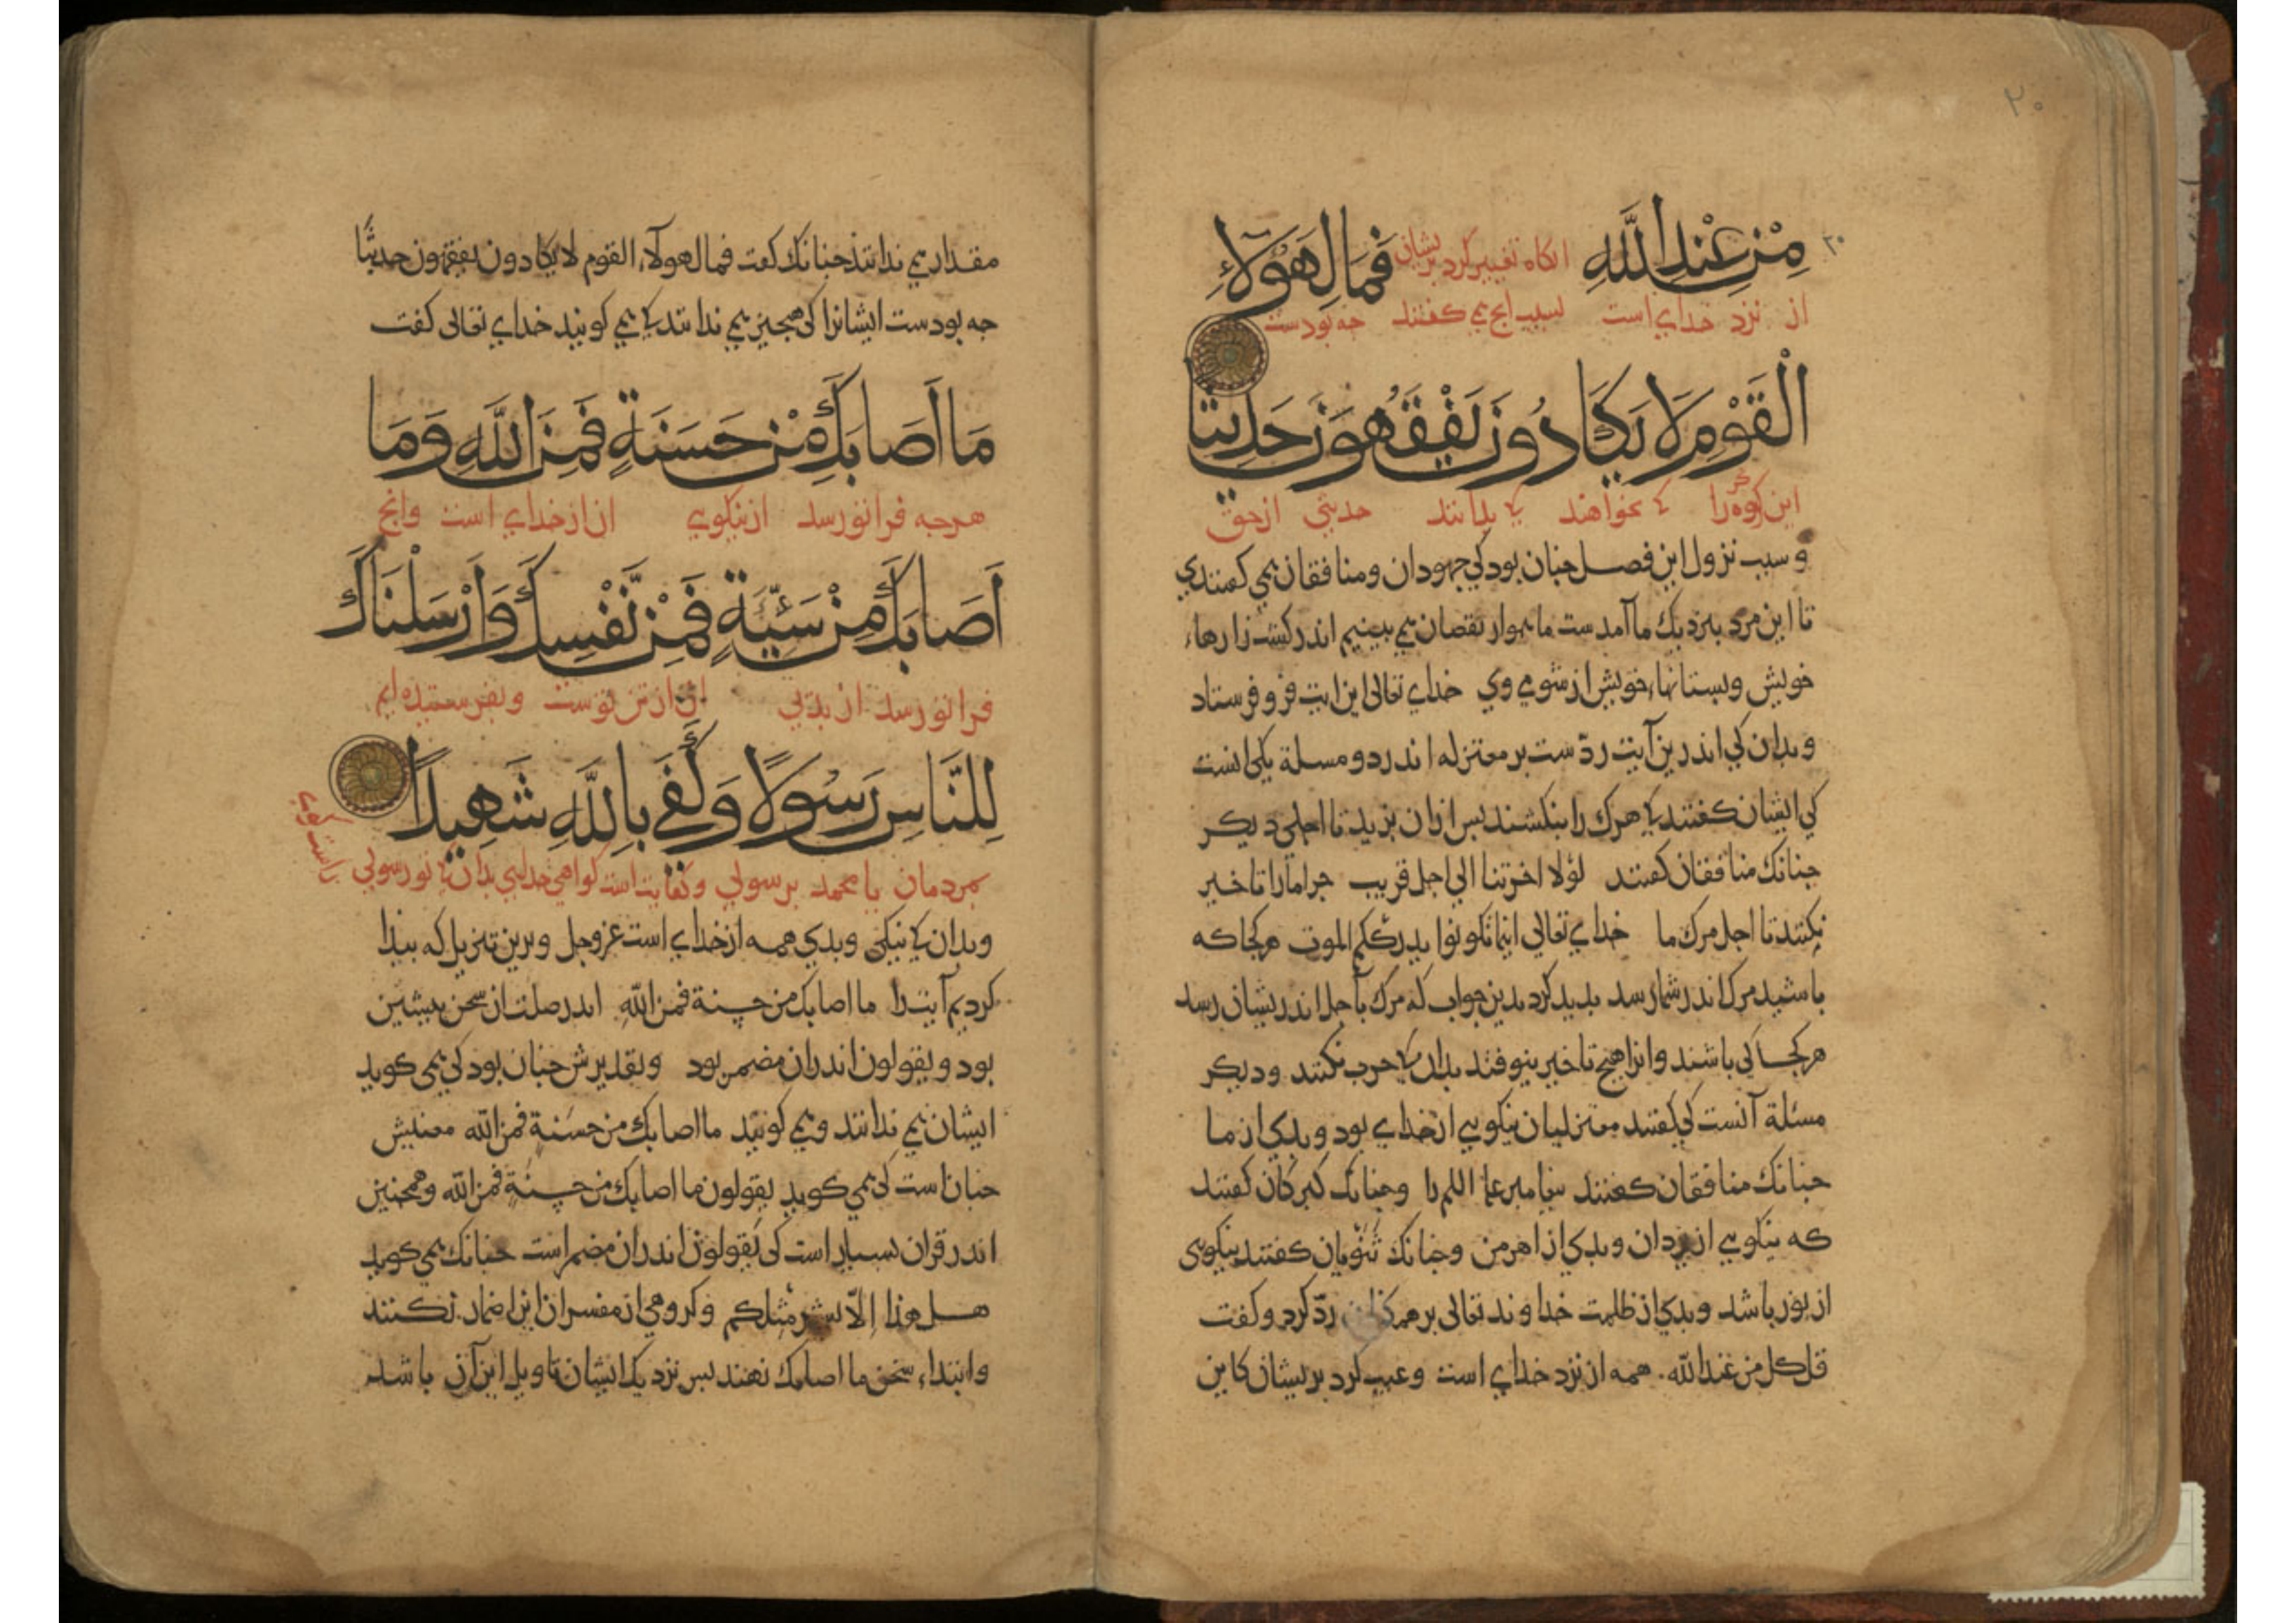 ٢٠
مِنْ عِنْدِ اللَّهِ انكاه تعییر کرد بریشان فَمَالِ هَؤُلَاءِ
از نزد خدای است بسبب انج می کفتند جه بودست
الْقَوْمِ لَا يَكَادُونَ يَفْقَهُونَ حَدِيثًا
این کروه را کی نخواهند کی بدانند حدیثی از حق
و سبب نزول این فصل جنان بود کی جهودان و منافقان می کفتندی
تا این مرد بنزدیک ما آمدست ما همواره نقصان می بینیم اندر کشت زارها
خویش و بستانها خویش از شومی وی خدای تعالی این ایت فرو فرستاد
و بدان کی اندرین آیت ردّست بر معتزله اندر دو مسلة یکی انست
کی ایشان کفتند کی هرک را بنکشند بس از ان بزید تا اجلی دیکر
جنانک منافقان کفتند لولا اخرتنا الی اجل قریب جرا مارا تاخیر
نکنند تا اجل مرک ما خدای تعالی اینما تکونوا یدرککم الموت هرکجا که
باشید مرک اندر شما رسد بدید کرد بدین جواب که مرک باجل اندریشان رسد
هرکجا کی باشند و انرا هیج تاخیر نیوفتد بدان کی حرب نکنند و دیکر
مسئلة آنست کی کفتند معتزلیان نیکویی از خدای بود و بدی از ما
جنانک منافقان کفتند بیغامبر علیه السلم را و جنانک کبرکان کفتند
که نیکویی از یزدان و بدی از اهرمن و جنانک ثنویان کفتند نیکویی
از نور باشد و بدی از ظلمت خداوند تعالی بر همکنان ردّ کرد و کفت
قل کل من عند اللّه. همه از نزد خدای است و عیب کرد بریشان کاین
مقدار می ندانند جنانک کفت فمال هولآء القوم لا یکادون یفقهون حدیثًا
جه بودست ایشانرا کی هیجیز می ندانند کی می کویند خدای تعالی کفت
مَا أَصَابَكَ مِنْ حَسَنَةٍ فَمِنَ اللَّهِ وَمَا
هرجه فرا تو رسد از نیکویی ان از خدای است وانج
أَصَابَكَ مِنْ سَيِّئَةٍ فَمِنْ نَفْسِكَ وَأَرْسَلْنَاكَ
فرا تو رسد از بدیی ان از تن توست و بفرستیده ایم
لِلنَّاسِ رَسُولًا وَكَفَى بِاللَّهِ شَهِيدًا
بمردمان یا محمد برسولی و کفایت است کواهی خدای بدان کی تو رسولی
براست کویی
و بدان کی نیکی و بدی همه از خدای است عزوجل و برین تنزیل که بیدا
کردیم آیت را ما اصابک من حسنة فمن اللّه اندر صلت از سخن بیشین
بود و یقولون اندران مضمر بود و تقدیرش جنان بود کی می کوید
ایشان می ندانند و می کویند ما اصابک من حسنة فمن اللّه معنیش
جنان است کی می کوید یقولون ما اصابک من حسنة فمن اللّه و همجنین
اندر قران بسیار است کی یقولون اندران مضمر است جنانک می کوید
هل هذا إلّا بشر مثلکم و کروهی از مفسران این اضمار نکنند
و ابتداء سخن ما اصابک نهند بس نزدیک ایشان تاویل این آن باشد